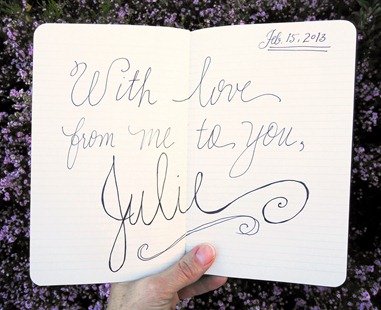 Feb. 15, 2013
With love
from me to you,
Julie